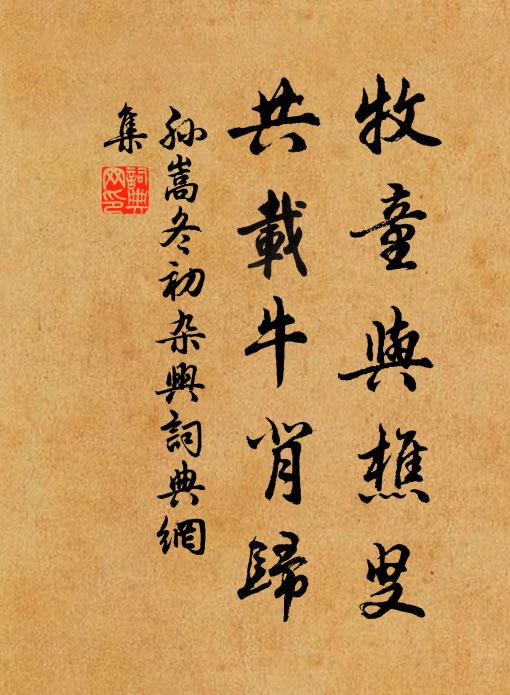 牧童與樵叟
共載牛背歸
孙嵩冬初杂興詞典網
集
詞典
网印